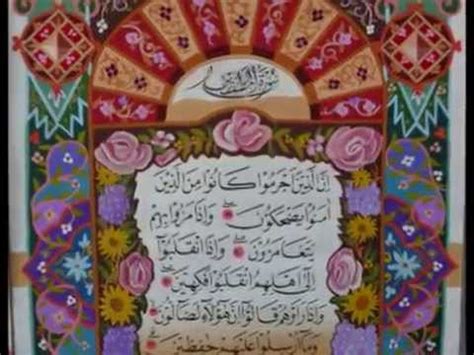 سورة المطففين
إِنَّ الَّذِينَ أَجْرَمُوا كَانُوا مِنَ الَّذِينَ
اٰمَنُوا يَضْحَكُونَ وَإِذَا مَرُّوا بِهِمْ
يَتَغَامَزُونَ وَإِذَا انْقَلَبُوا
إِلَىٰ أَهْلِهِمُ انْقَلَبُوا فَكِهِينَ
وَإِذَا رَأَوْهُمْ قَالُوا إِنَّ هٰؤُلَاءِ لَضَالُّونَ
وَمَا أُرْسِلُوا عَلَيْهِمْ حٰفِظِينَ